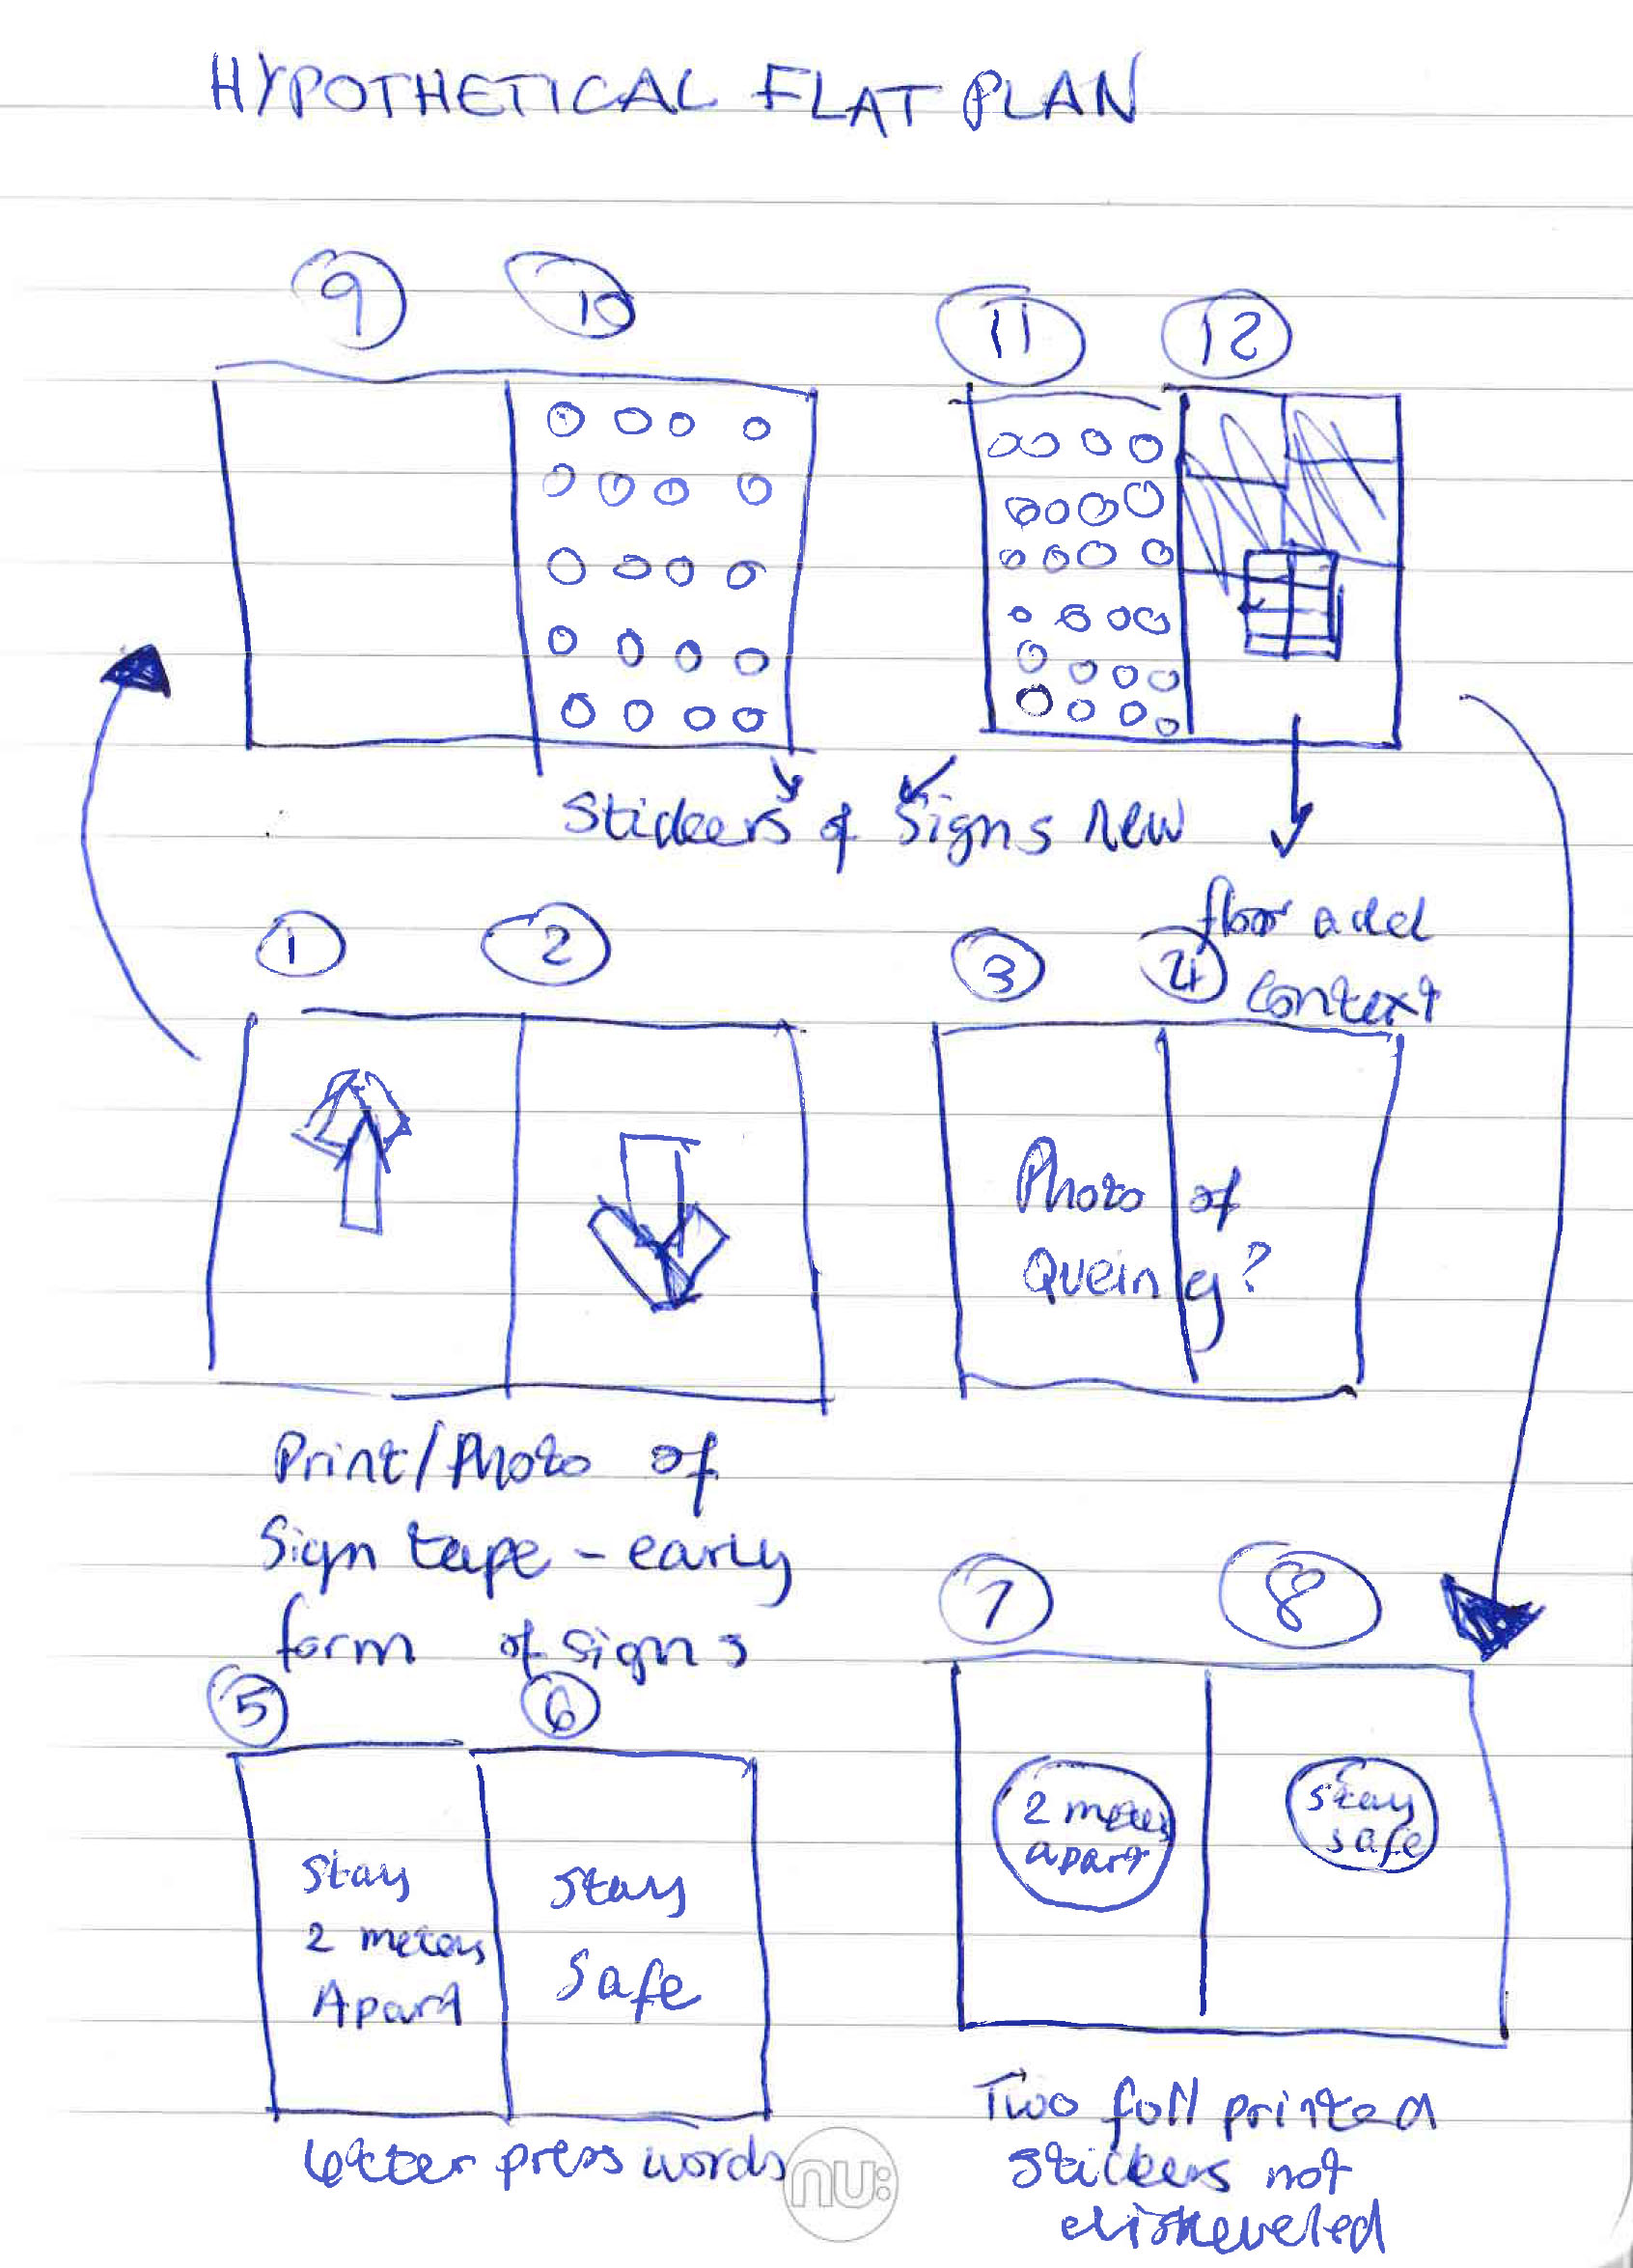 HYPOTHETICAL FLAT PLAN
9 10 11 12
Stickers & Signs new
floor add
context
1 2 3 4
Photo of
Queing?
Print/Photo of
Sign tape - early
form of signs
5 6
Stay
2 meters
Apart
Stay
Safe
letter press words
7 8
2 meters
apart
stay
safe
Two full printed
stickers not
disheveled
nu: